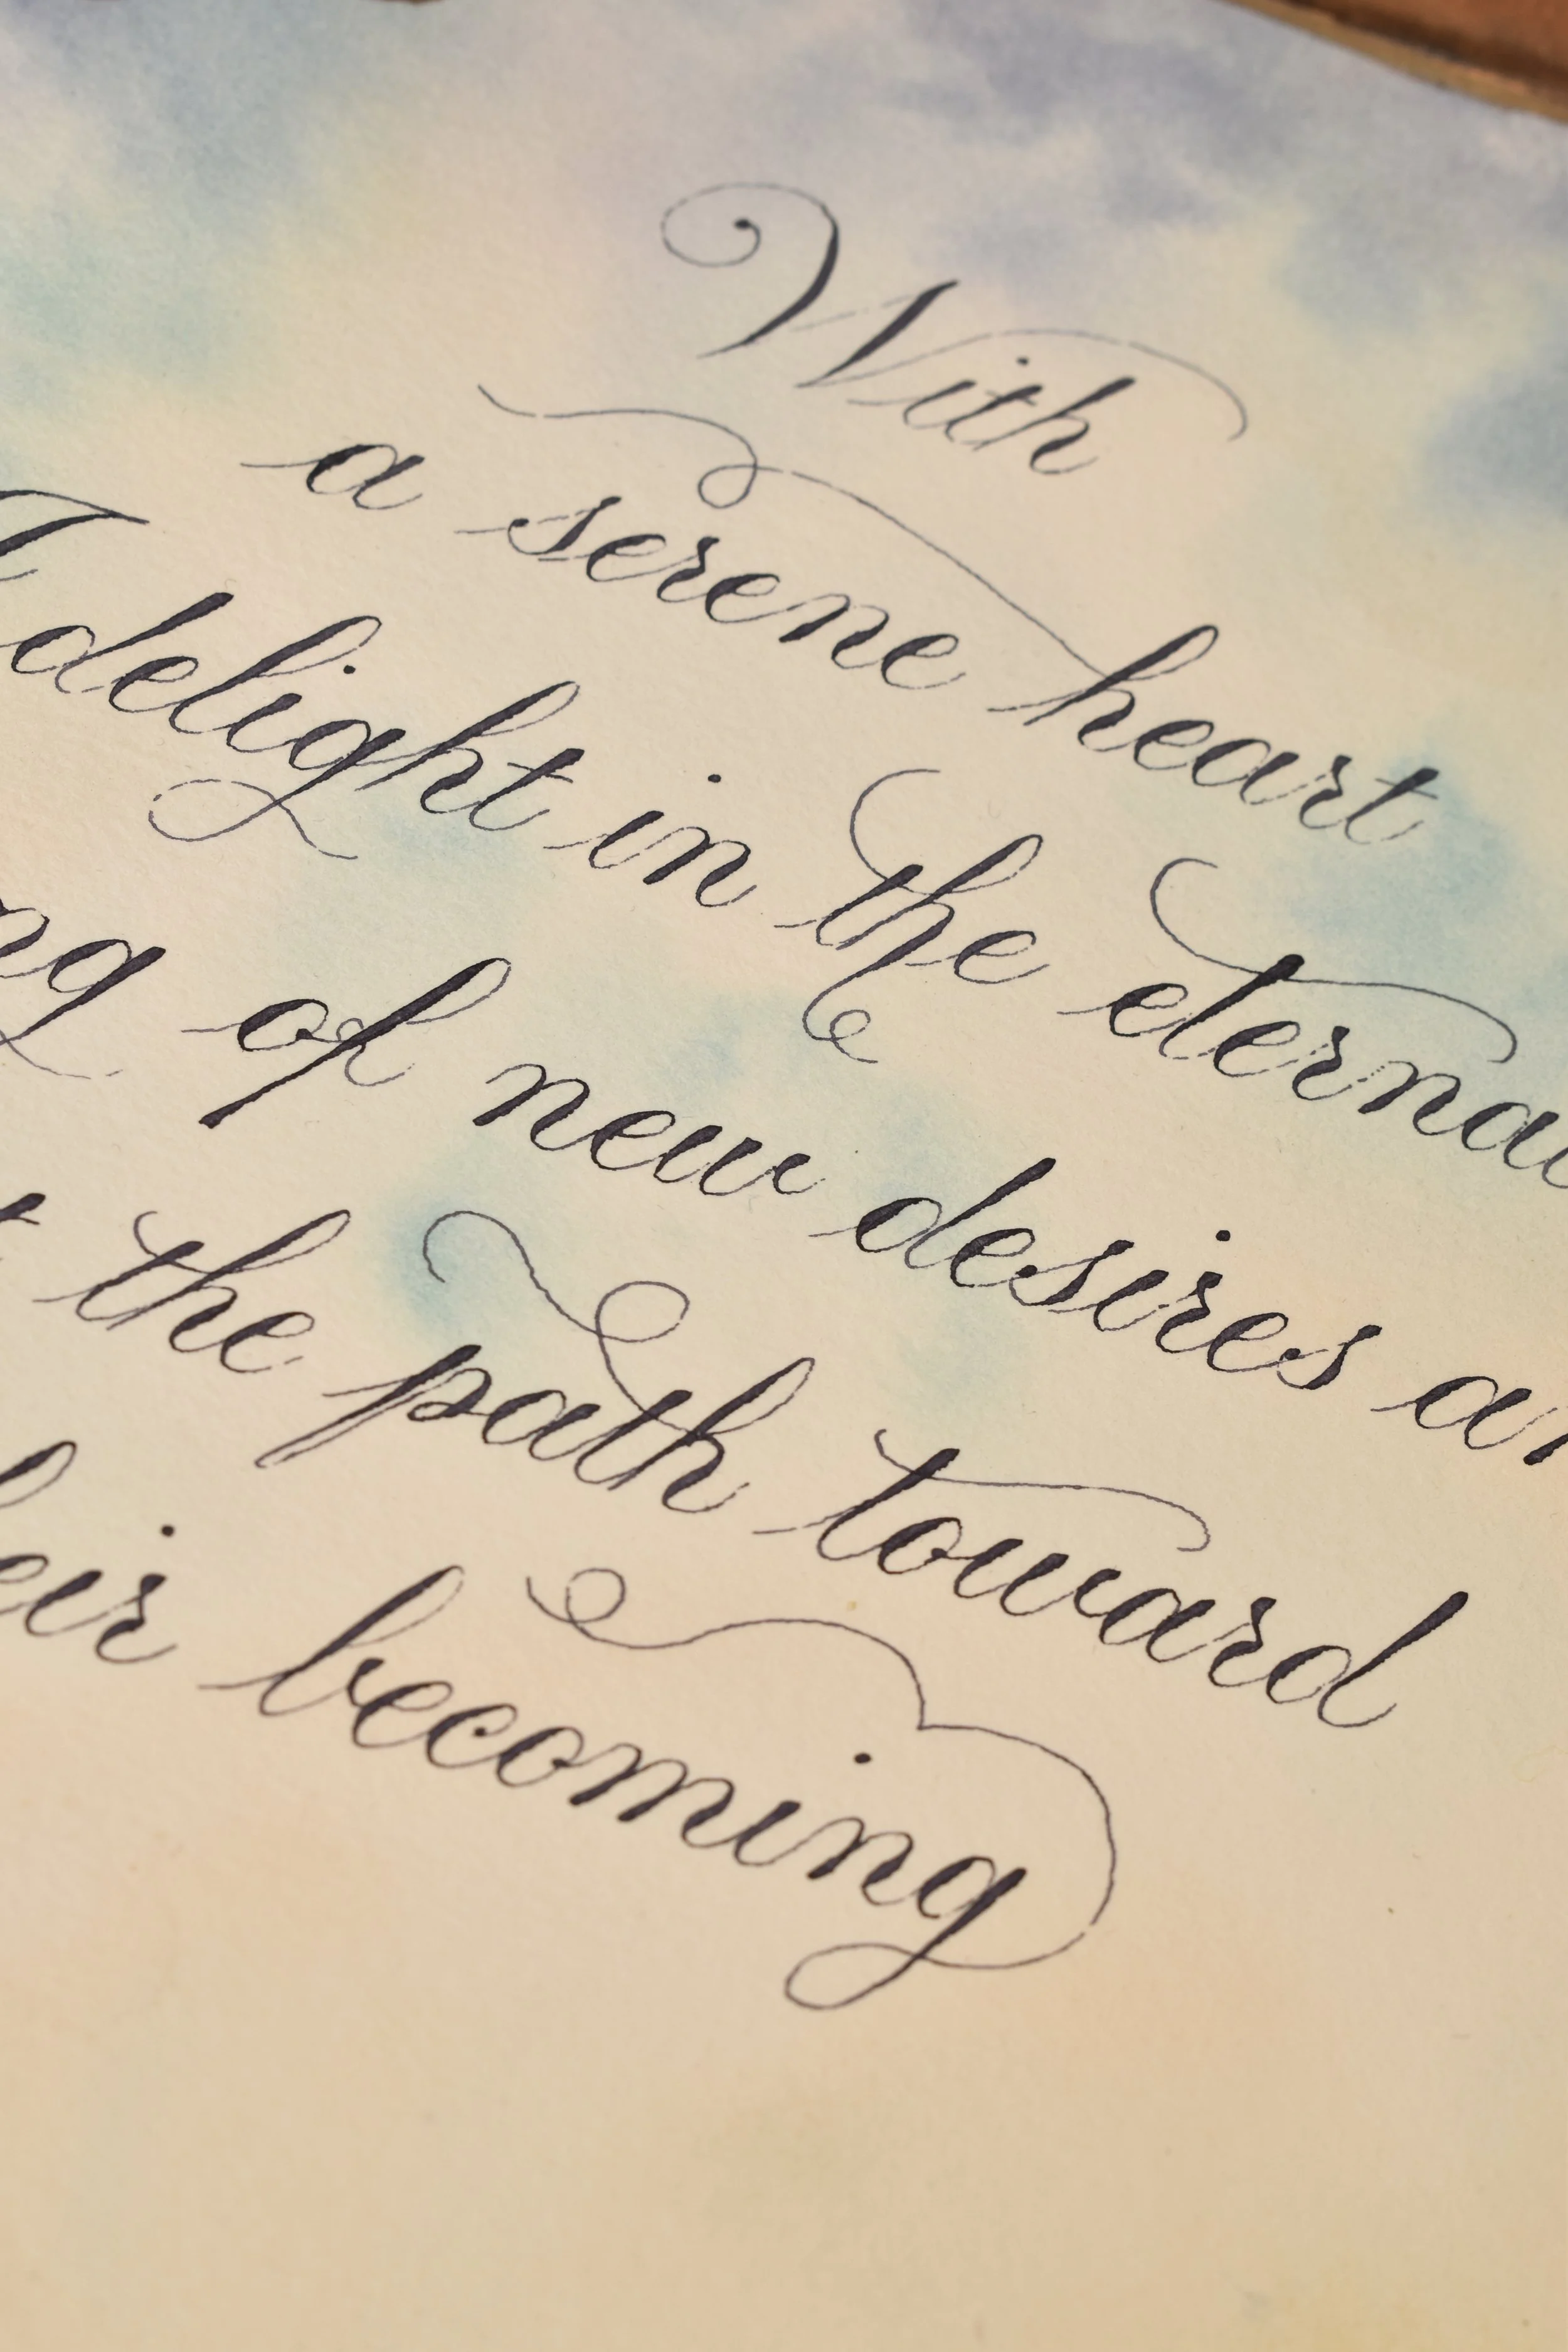 With
a serene heart
I delight in the eterna
ng of new desires a
the path toward
eir becoming